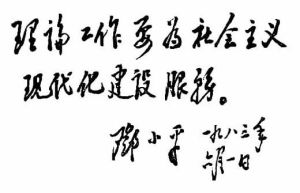 理論工作要为社会主义
现代化建设服務。
鄧小平
一九八三年
六月一日